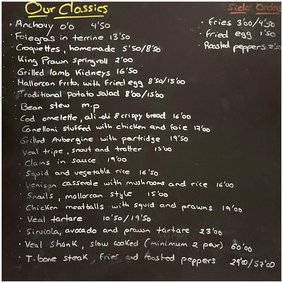 Our Classics
Anchovy 0'0 4'50
Foiegras in terrine 13'50
Croquettes, homemade 5'50/8'50
King Prawn springroll 2'00
Grilled lamb Kidneys 16'50
Mallorcan frito, with fried egg 8'50/15'00
Traditional potato salad 8'00/15'00
Bean stew m.p
Cod omelette, ali-oli & crispy bread 16'00
Canelloni stuffed with chicken and foie 17'00
Grilled Aubergine with partridge 19'50
Veal tripe, snout and trotter 15'00
Clams in sauce 19'00
Squid and vegetable rice 16'50
Venison casserole with mushrooms and rice 16'00
Snails, mallorcan style 15'00
Chicken meatballs with squid and prawns 19'00
Veal tartare 10'50/19'50
Sirviola, avocado and prawn tartare 23'00
Veal shank, slow cooked (minimum 2 pax) 60'00
T-bone steak, fries and roasted peppers 29'00/57'00
Side Orders
Fries 3'00/4'50
Fried egg 1'50
Roasted peppers